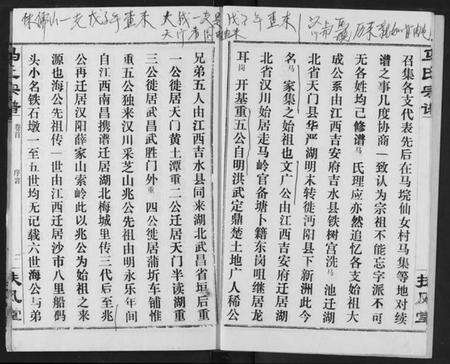 召集各支代表先后在马垸仙女村马集等地对续
谱之事几度协商一致认为宗祖不能忘字派不可
无各姓均已修谱马氏理应亦然追忆各支始祖大
成公系由江西吉安府吉水县铁树宫洗池迁湖
北省天门县华严湖明末转徙沔阳县下新洲此今
名马家集之始祖也文广公由江西吉安府迁湖
北省汉川始居走马岭官备塘卜籍东岗咀继居龙
耳岗开基重五公自明洪武定鼎楚土地广人稀公
兄弟五人由江西吉水县同来湖北武昌省垣后重
一公徙居天门黄土潭重二公迁居天门半读湖重
三公徙居武昌武胜门外重四公徙居蒲圻车铺惟
重五公独来汉川采芝山兆公先祖由明永乐年间
自江西南昌携谱迁居湖北梅城里传三代后至兆
公再迁居汉阳薛家山索岭此以兆公为始祖之来
源也海公先祖传一世由江西迁居沙市八里船码
头小名铁石墩一至五世均无记载六世海公与弟
马氏宗谱
卷首
序言
扶风堂
马氏宗谱
扶风堂